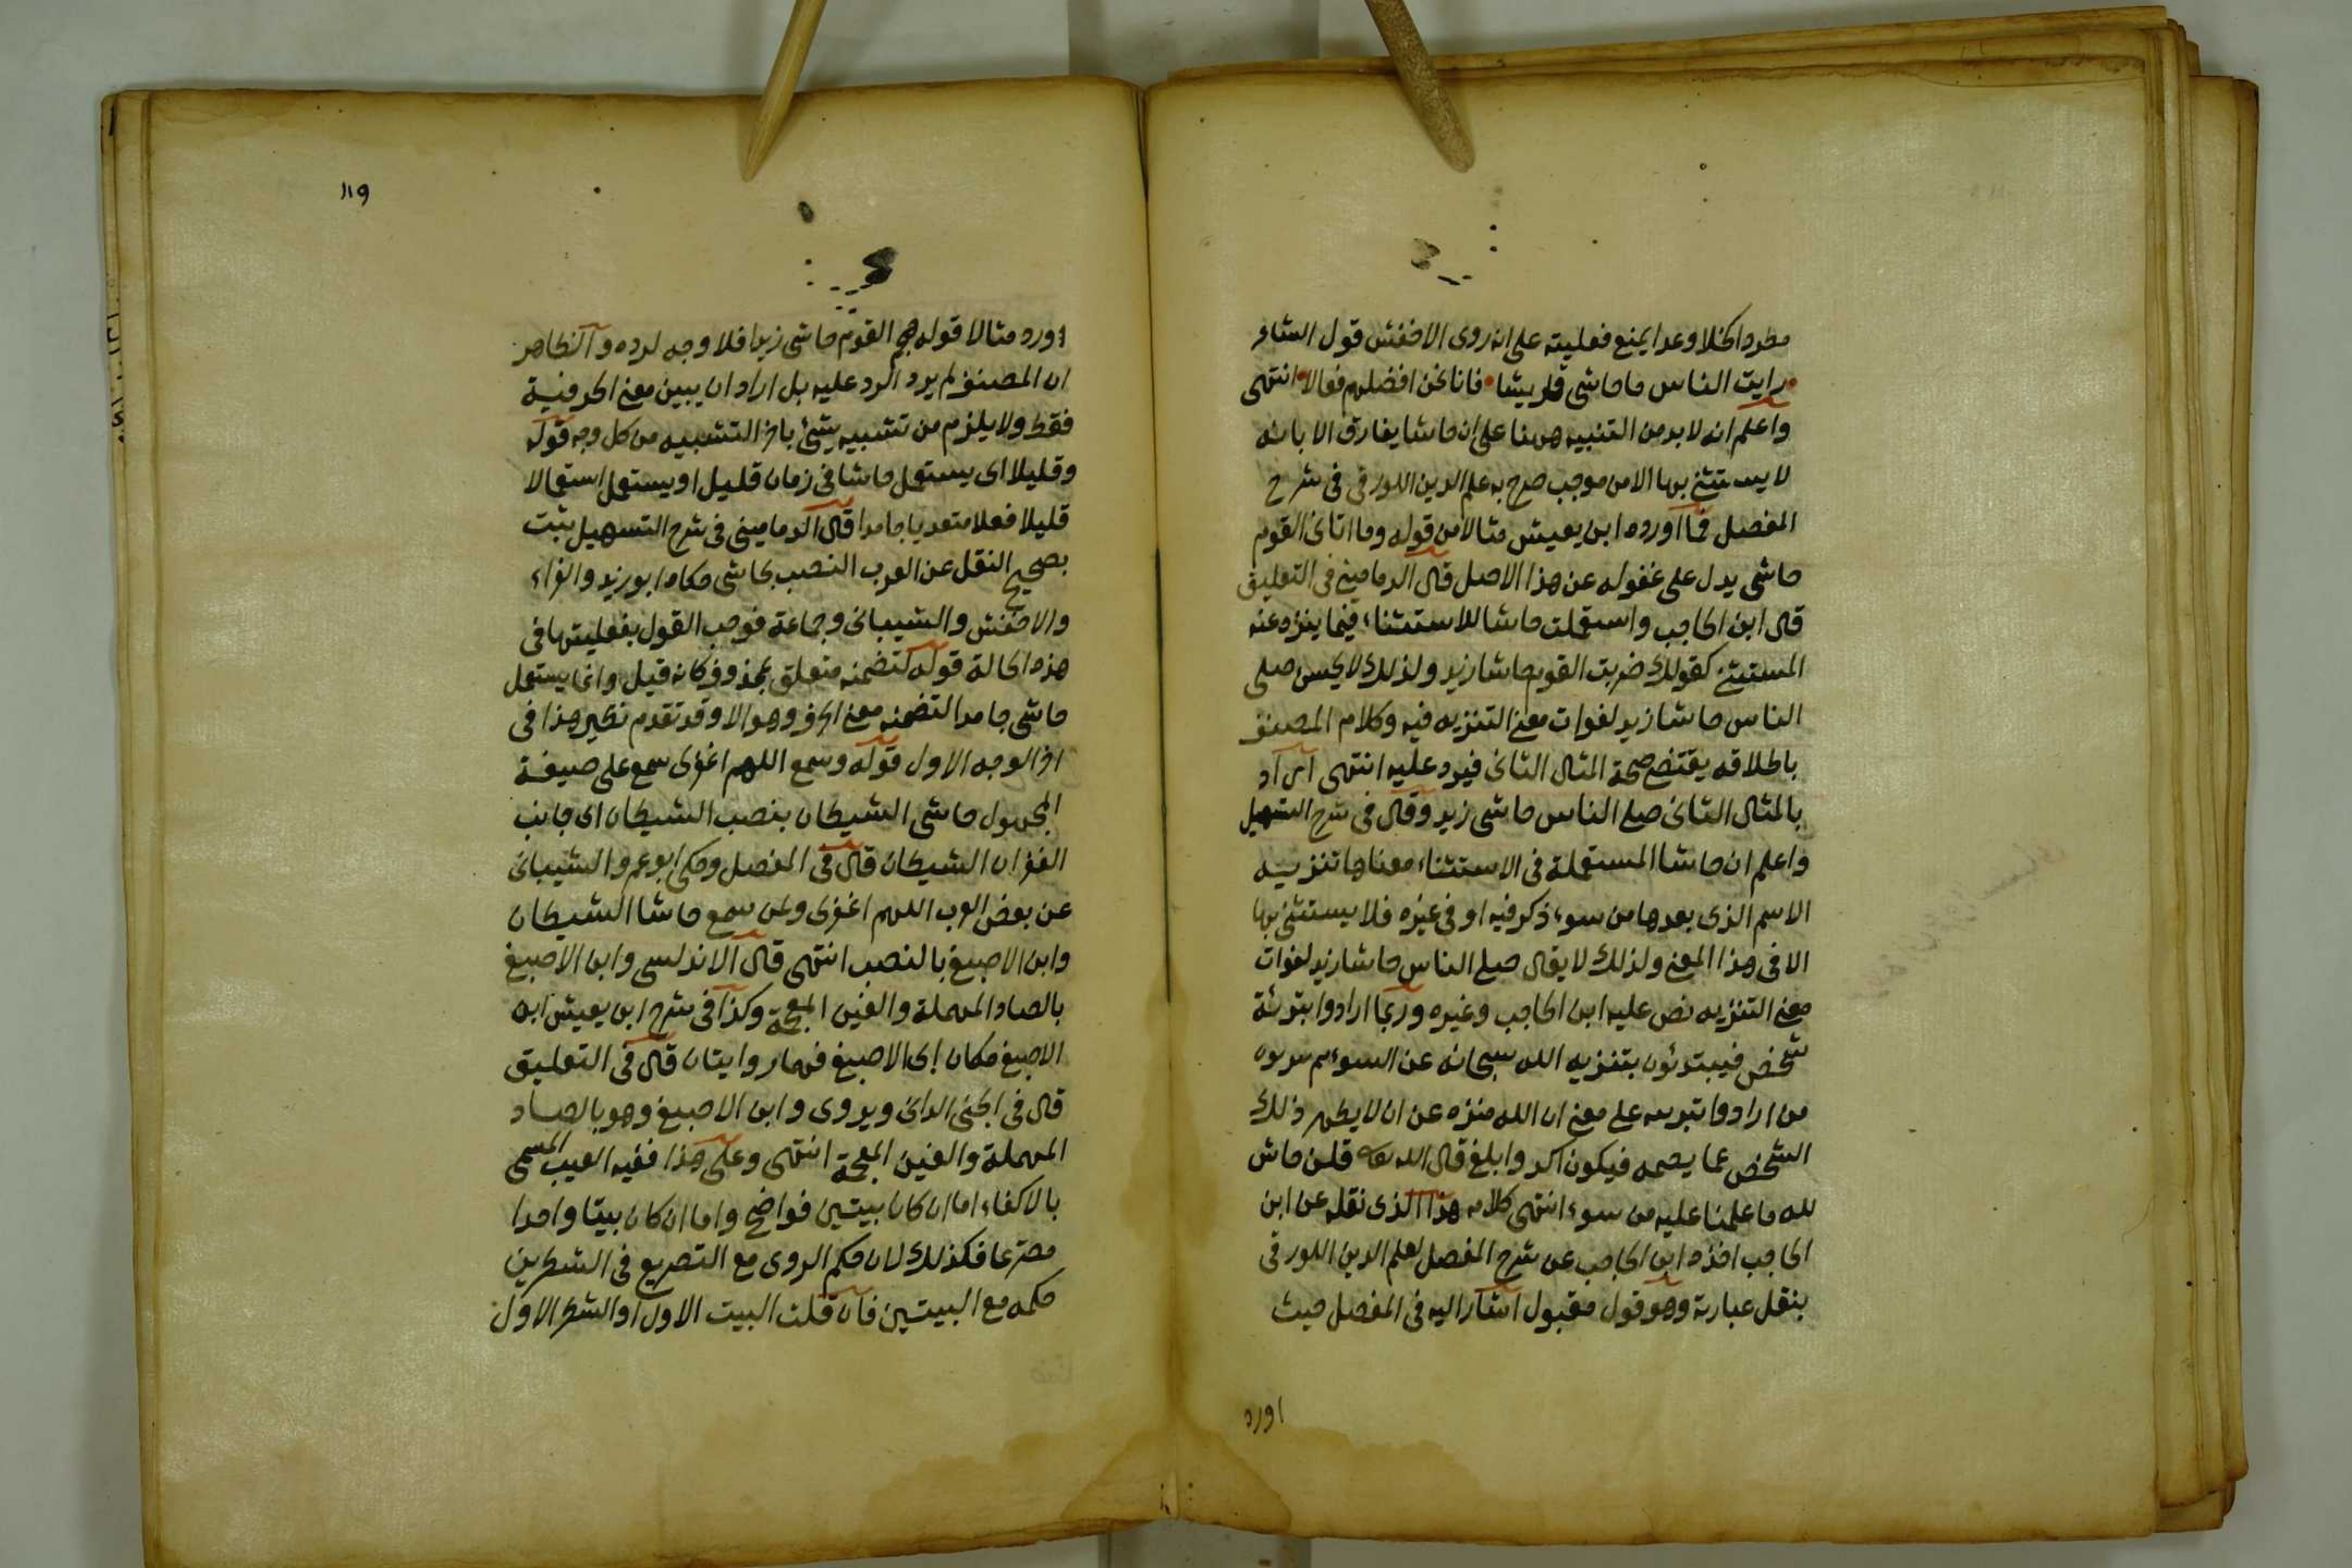 مطردا كخلا وعدا يمنع فعليته على انه روى الاخفش قول الشاعر
رايت الناس ما حاشى قريشا فانا نحن افضلهم فعالا انتهى
واعلم انه لا بد من التنبيه ههنا على ان حاشا يفارق الا بانه
لا يستثنى بها الا من موجب صرح به علم الدين اللورقى فى شرح
المفصل فما اورده ابن يعيش مثالا من قوله وما اتانى القوم
حاشى يدل على غفوله عن هذا الاصل قال الدمامينى فى التعليق
قال ابن الحاجب واستعملت حاشا للاستثناء فيما ينزه عنه
المستثنى كقولك ضربت القوم حاشا زيد ولذلك لا يحسن صلى
الناس حاشا زيد لفوات معنى التنزيه فيه وكلام المصنف
باطلاقه يقتضى صحة المثال الثانى فيرد عليه انتهى اراد
بالمثال الثانى صلى الناس حاشى زيد وقال فى شرح التسهيل
واعلم ان حاشا المستعملة فى الاستثناء معناها تنزيه
الاسم الذى بعدها من سوء ذكر فيه او فى غيره فلا يستثنى بها
الا فى هذا المعنى ولذلك لا يقال صلى الناس حاشا زيد لفوات
معنى التنزيه نص عليه ابن الحاجب وغيره وربما ارادوا تبرئة
شخص فيبتدئون بتنزيه الله سبحانه عن السوء ثم
من ارادوا تبرىه على معنى ان الله منزه عن ان لا يطهر ذلك
الشخص عما يصمه فيكون اكد وابلغ قال الله تعه قلن حاش
لله ما علمنا عليه من سوء انتهى كلامه هذا الذى نقله عن ابن
الحاجب اخذه ابن الحاجب عن شرح المفصل لعلم الدين اللورقى
بنقل عبارته وهو قول مقبول اشار اليه فى المفصل حيث
اورد
١١٩
اورد مثالا قوله هجم القوم حاشى زيدا فلا وجه لرده والظاهر
ان المصنف لم يرد الرد عليه بل اراد ان يبين معنى الحرفية
فقط ولا يلزم من تشبيه شئ باخر التشبيه من كل وجه قوله
وقليلا اى يستعمل حاشا فى زمان قليل او يستعمل استعمالا
قليلا فعلا متعديا جامدا قال الدمامينى فى شرح التسهيل ثبت
بصحيح النقل عن العرب النصب بحاشى حكاه ابو زيد والفراء
والاخفش والشيبانى وجماعة فوجب القول بفعليتها فى
هذه الحالة قوله لتضمنه متعلق بمحذوف كانه قيل وانما يستعمل
حاشى جامدا لتضمنه معنى الحرف وهو الا وقد تقدم نظير هذا فى
اخر الوجه الاول قوله وسمع اللهم اغفرلى سمع على صيغة
المجهول حاشى الشيطان بنصب الشيطان اى جانب
الغفران الشيطان قال فى المفصل وحكى ابو عمرو الشيبانى
عن بعض العرب اللهم اغفرلى ولمن سمع حاشا الشيطان
وابن الاصبغ بالنصب انتهى قال الاندلسى وابن الاصبغ
بالصاد المهملة والغين المعجمة وكذا فى شرح ابن يعيش ابو
الاصبغ مكان ابن الاصبغ فهما روايتان قال فى التعليق
قال فى الجنى الدانى ويروى وابن الاصبغ وهو بالصاد
المهملة والغين المعجمة انتهى وعلى هذا ففيه العيب المسمى
بالاكفاء اما ان كان بيتين فواضح واما ان كان بيتا واحدا
مصرعا فكذلك لان حكم الروى مع التصريع فى الشطرين
حكمه مع البيتين فان قلت البيت الاول او الشطر الاول